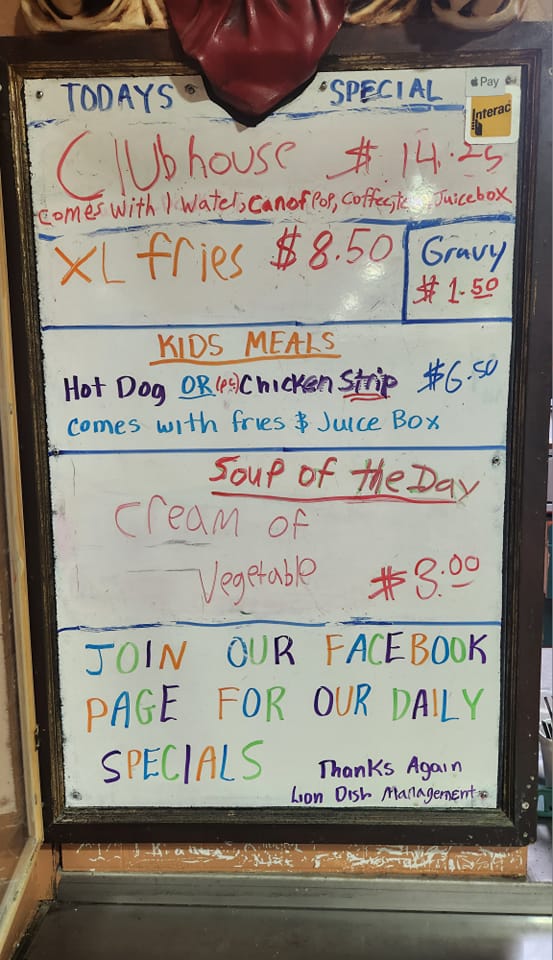 TODAYS SPECIAL
Pay
Interac
Clubhouse $ 14.25
comes with 1 water, can of Pop, Coffee, Juicebox
XL fries $8.50
Gravy
$1.50
KIDS MEALS
Hot Dog OR (1pc) Chicken Strip $6.50
comes with fries & Juice Box
Soup of the Day
Cream of
Vegetable $3.00
JOIN OUR FACEBOOK
PAGE FOR OUR DAILY
SPECIALS
Thanks Again
Lion Dish Management